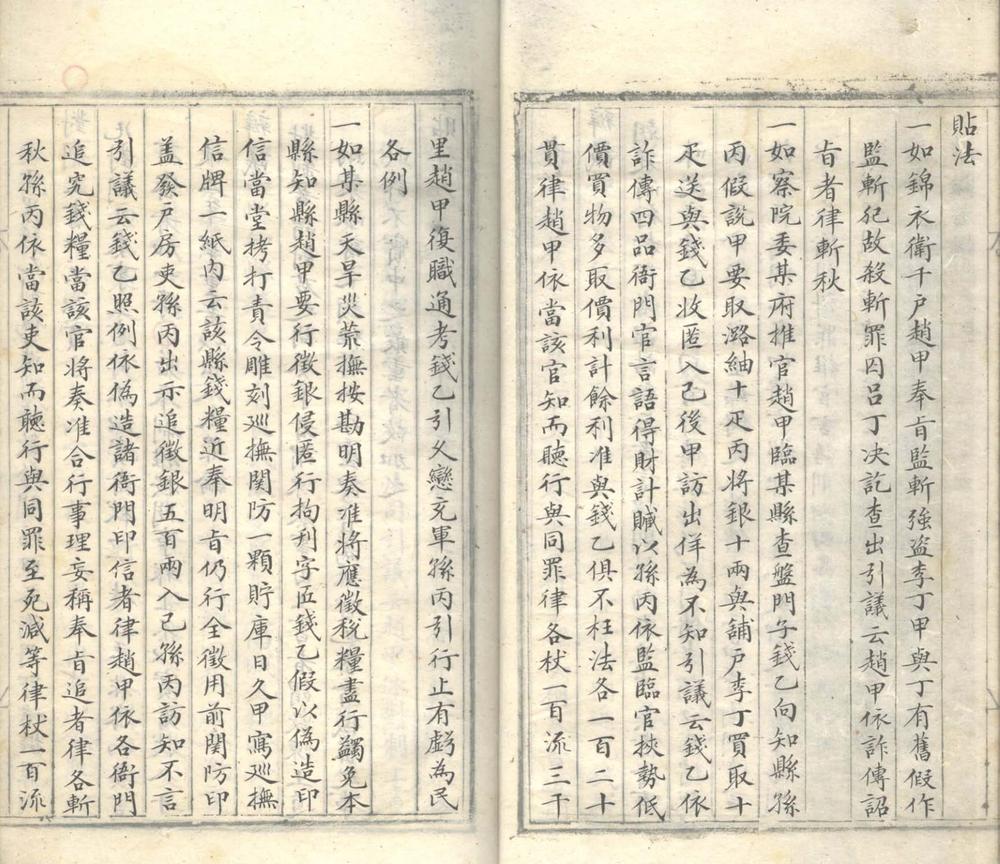 貼法
一如錦衣衛千戶趙甲奉旨監斬強盗李丁甲與丁有舊假作
監斬犯故殺斬罪囚吕丁决訖查出引議云趙甲依詐傳詔
旨者律斬秋
一如察院委某府推官趙甲臨某縣查盤門子錢乙向知縣孫
丙假說甲要取潞紬十疋丙將銀十兩與舖户李丁買取十
疋送與錢乙收匿入己後甲訪出佯為不知引議云錢乙依
詐傳四品衙門官言語得財計贓以孫丙依監臨官挾勢低
價買物多取價利計餘利准與錢乙俱不枉法各一百二十
貫律趙甲依當該官知而聽行與同罪律各杖一百流三千
里趙甲復職通考錢乙引乂戀充軍孫丙引行止有虧為民
各例
一如某縣天旱災荒撫按勘明奏准將應徵税糧盡行蠲免本
縣知縣趙甲要行徵銀侵匿行拘刋字匠錢乙假以偽造印
信當堂拷打責令雕刻廵撫関防一顆貯庫日久甲寫廵撫
信牌一紙内云該縣錢糧近奉明旨仍行全徵用前関防印
盖發户房吏孫丙出示追徵銀五百兩入己孫丙訪知不言
引議云錢乙照例依偽造諸衙門印信者律趙甲依各衙門
追究錢糧當該官將奏准合行事理妄稱奉旨追者律各斬
秋孫丙依當該吏知而聽行與同罪至死減等律杖一百流